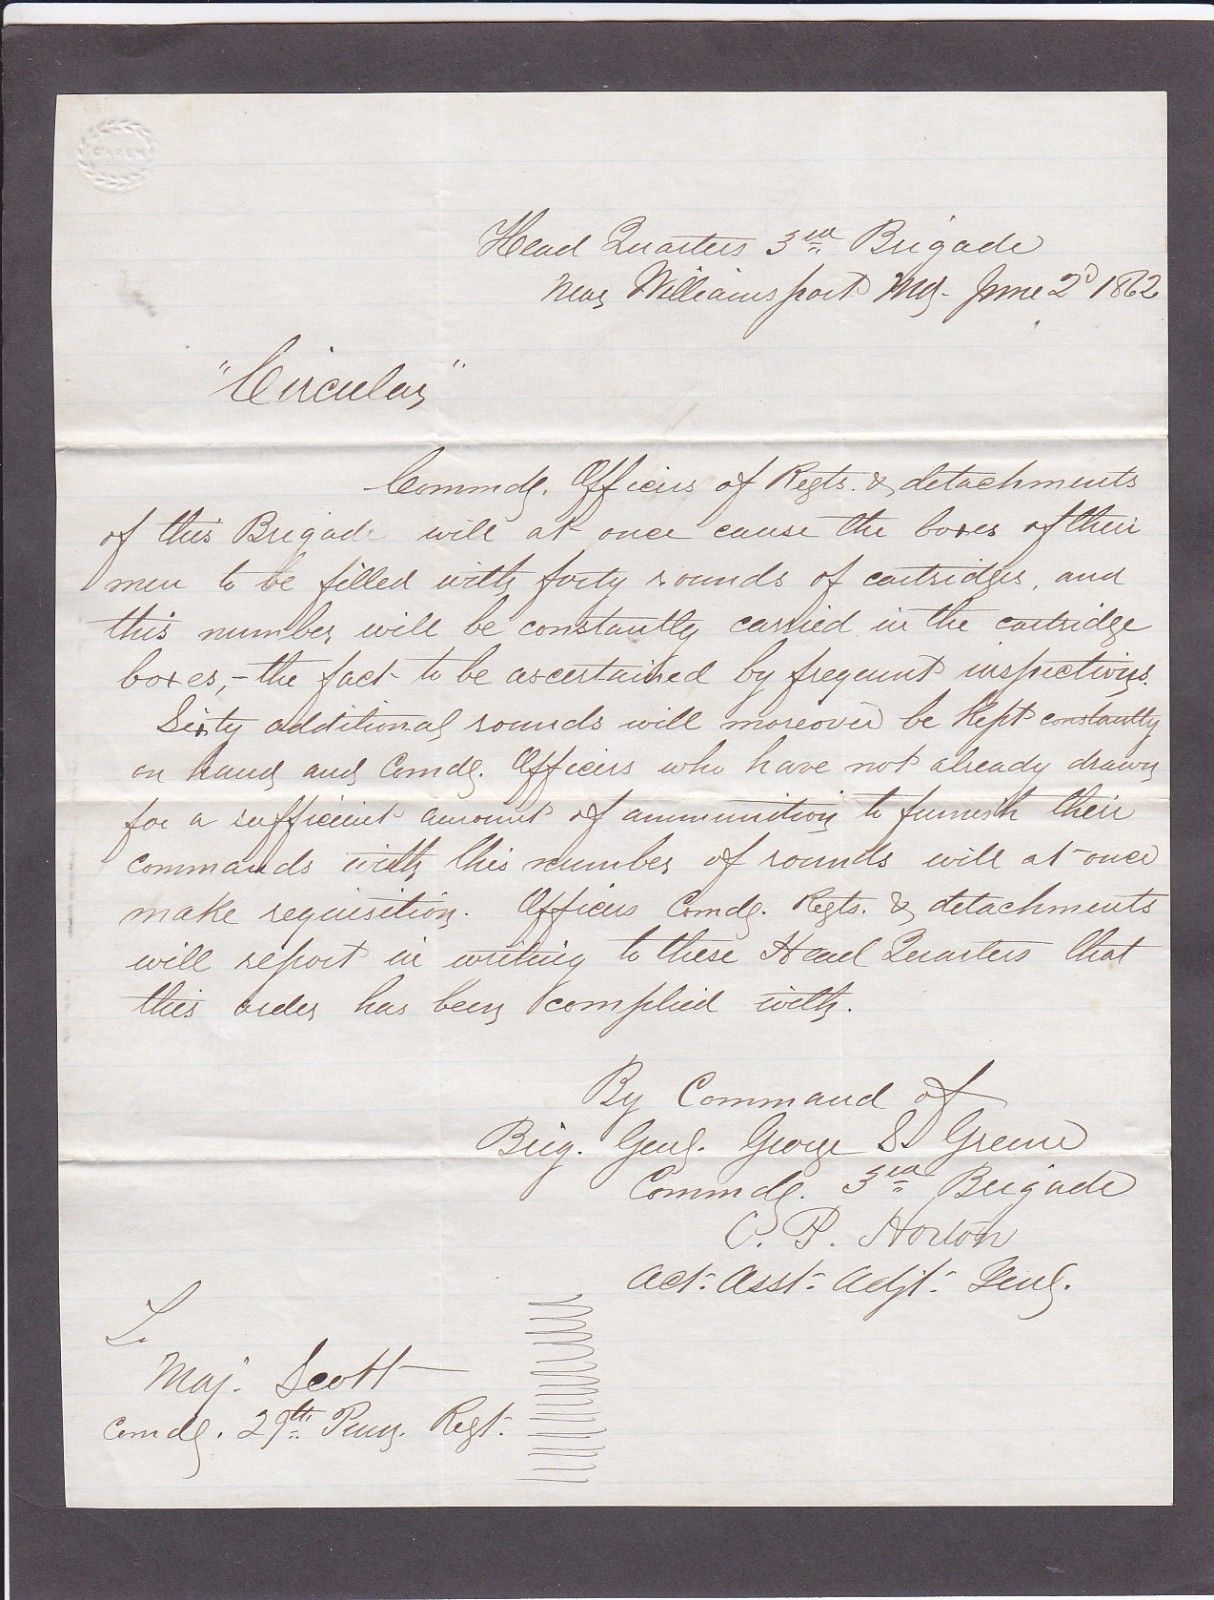 CAREW
Head Quarters 3rd Brigade
Near Williamsport Md. June 2d 1862
"Circular"
Commdg. Officers of Regts. & detachments
of this Brigade will at once cause the boxes of their
men to be filled with forty rounds of cartridges, and
this number will be constantly carried in the cartridge
boxes,- the fact to be ascertained by frequent inspections.
Sixty additional rounds will moreover be kept constantly
on hand and Comdg. Officers who have not already drawn
for a sufficient amount of ammunition to furnish their
commands with this number of rounds will at once
make requisition. Officers Comdg. Regts. & detachments
will report in writing to these Head Quarters that
this order has been complied with.
By Command of
Brig. Genl. George S. Greene
Commdg. 3rd Brigade
C. P. Horton
Act. Asst. Adjt. Genl.
To
Maj. Scott
Comdg. 29th Penn. Regt.